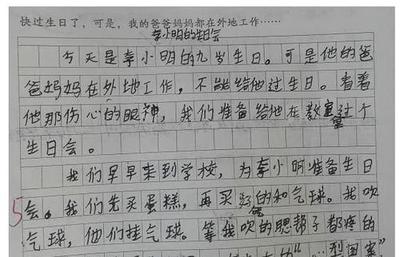 快过生日了，可是，我的爸爸妈妈都在外地工作……
李小明的生日会
今天是李小明的九岁生日。可是他的爸
爸妈妈在外地工作，不能给他过生日。看着
他那伤心的眼神，我们准备给他在教室过个
生日会。
我们早早来到学校，为李小明准备生日
会。我们先买蛋糕，再买好的和气球。我吹
气球，他们挂气球。等我吹的腮帮子都疼的
5